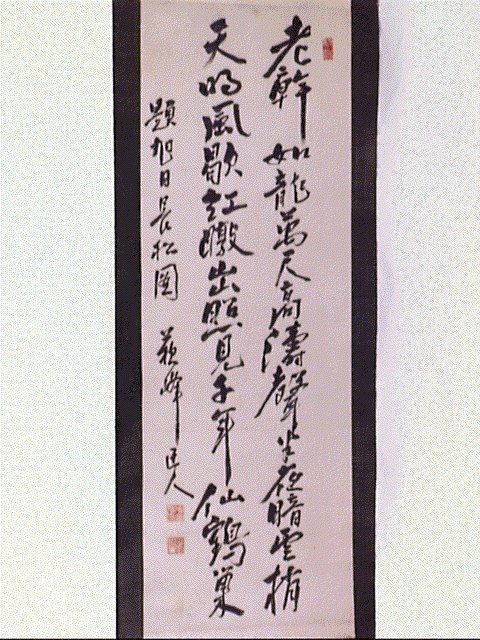 老幹如龍萬尺高濤聲半夜暗雲梢
天明風歇紅暾出照見千年仙鶴巢
題旭日長松圖 蘇峰 人